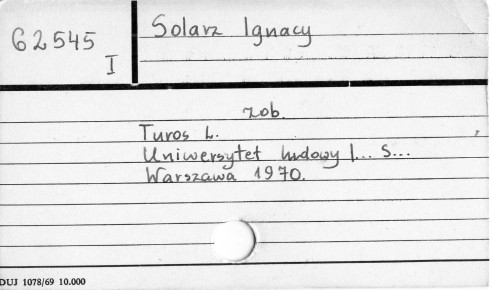 62545
I
Solarz Ignacy
zob.
Turos L.
Uniwersytet ludowy I... S...
Warszawa 1970.
DUJ 1078/69 10.000